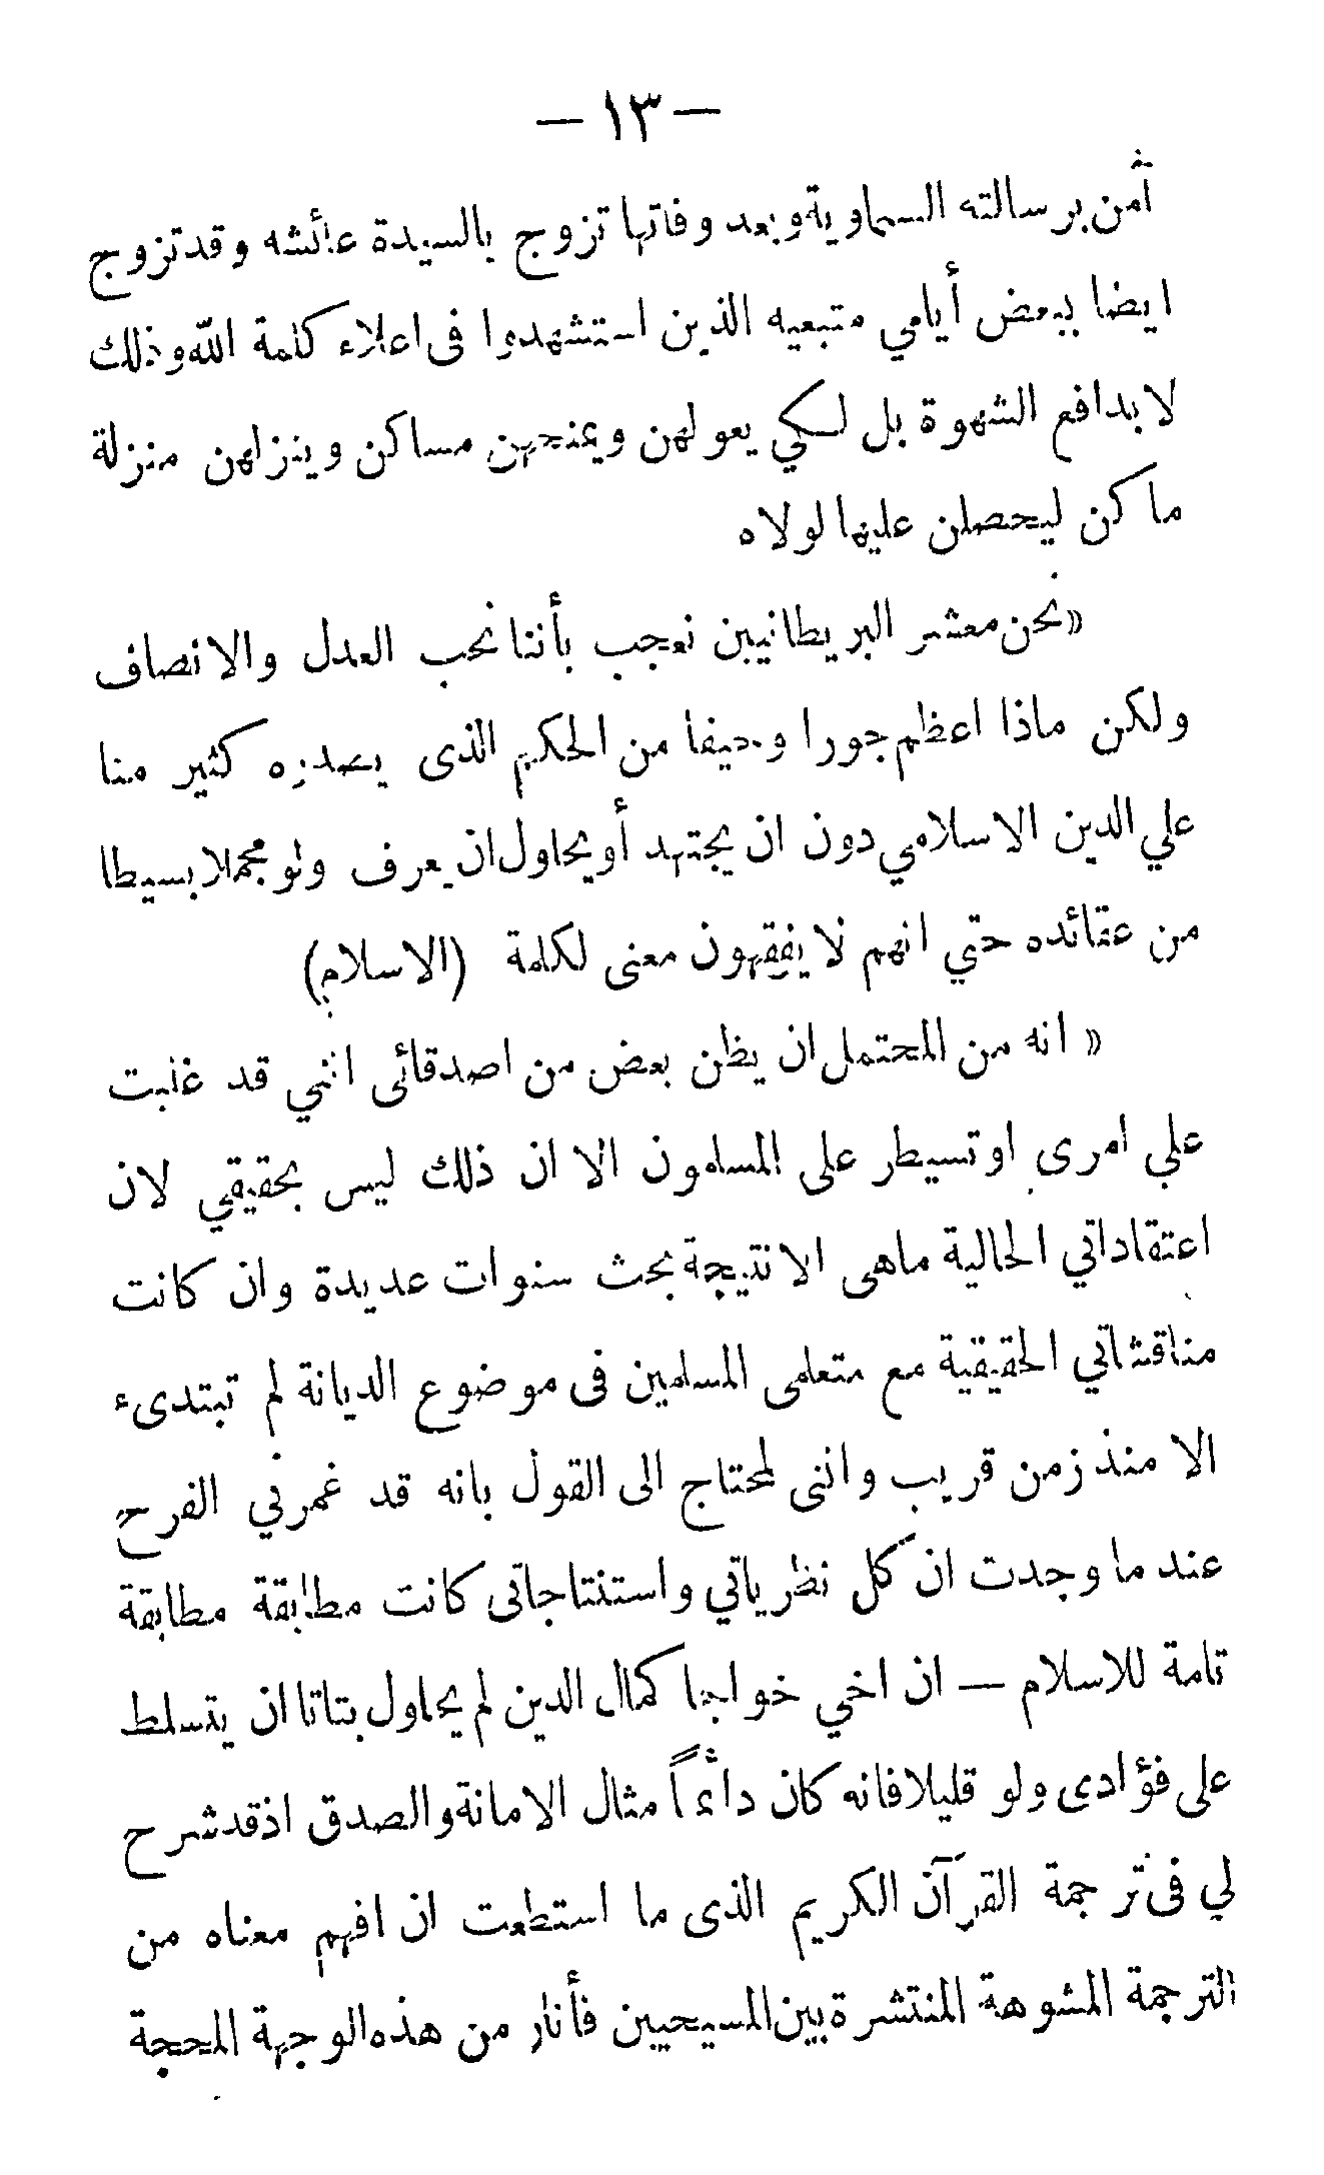 — ١٣ —
آمن برسالته السماوية وبعد وفاتها تزوج بالسيدة عائشه وقد تزوج
ايضا ببعض أيامي متبعيه الذين استشهدوا فى اعلاء كلمة الله وذلك
لا بدافع الشهوة بل لكي يعولهن ويمنحهن مساكن وينزلهن منزلة
ما كن ليحصلن عليها لولاه
« نحن معشر البريطانيين نعجب بأننا نحب العدل والانصاف
ولكن ماذا اعظم جورا وحيفا من الحكم الذى يصدره كثير منا
علي الدين الاسلامي دون ان يجتهد أو يحاول ان يعرف ولو مجملا بسيطا
من عقائده حتي انهم لا يفقهون معنى لكلمة (الاسلام)
« انه من المحتمل ان يظن بعض من اصدقائى اننى قد غلبت
علي امرى او تسيطر على المسلمون الا ان ذلك ليس بحقيقي لان
اعتقاداتي الحالية ماهى الا نتيجة بحث سنوات عديدة وان كانت
مناقشاتي الحقيقية مع متعلمى المسلمين فى موضوع الديانة لم تبتدىء
الا منذ زمن قريب واننى لمحتاج الى القول بانه قد غمرني الفرح
عند ما وجدت ان كل نظرياتي واستنتاجاتى كانت مطابقة مطابقة
تامة للاسلام — ان اخي خواجا كمال الدين لم يحاول بتاتا ان يتسلط
على فؤادى ولو قليلا فانه كان دائماً مثال الامانة والصدق اذ قد شرح
لي فى ترجمة القرآن الكريم الذى ما استطعت ان افهم معناه من
الترجمة المشوهة المنتشرة بين المسيحيين فأنار من هذه الوجهة المحجة